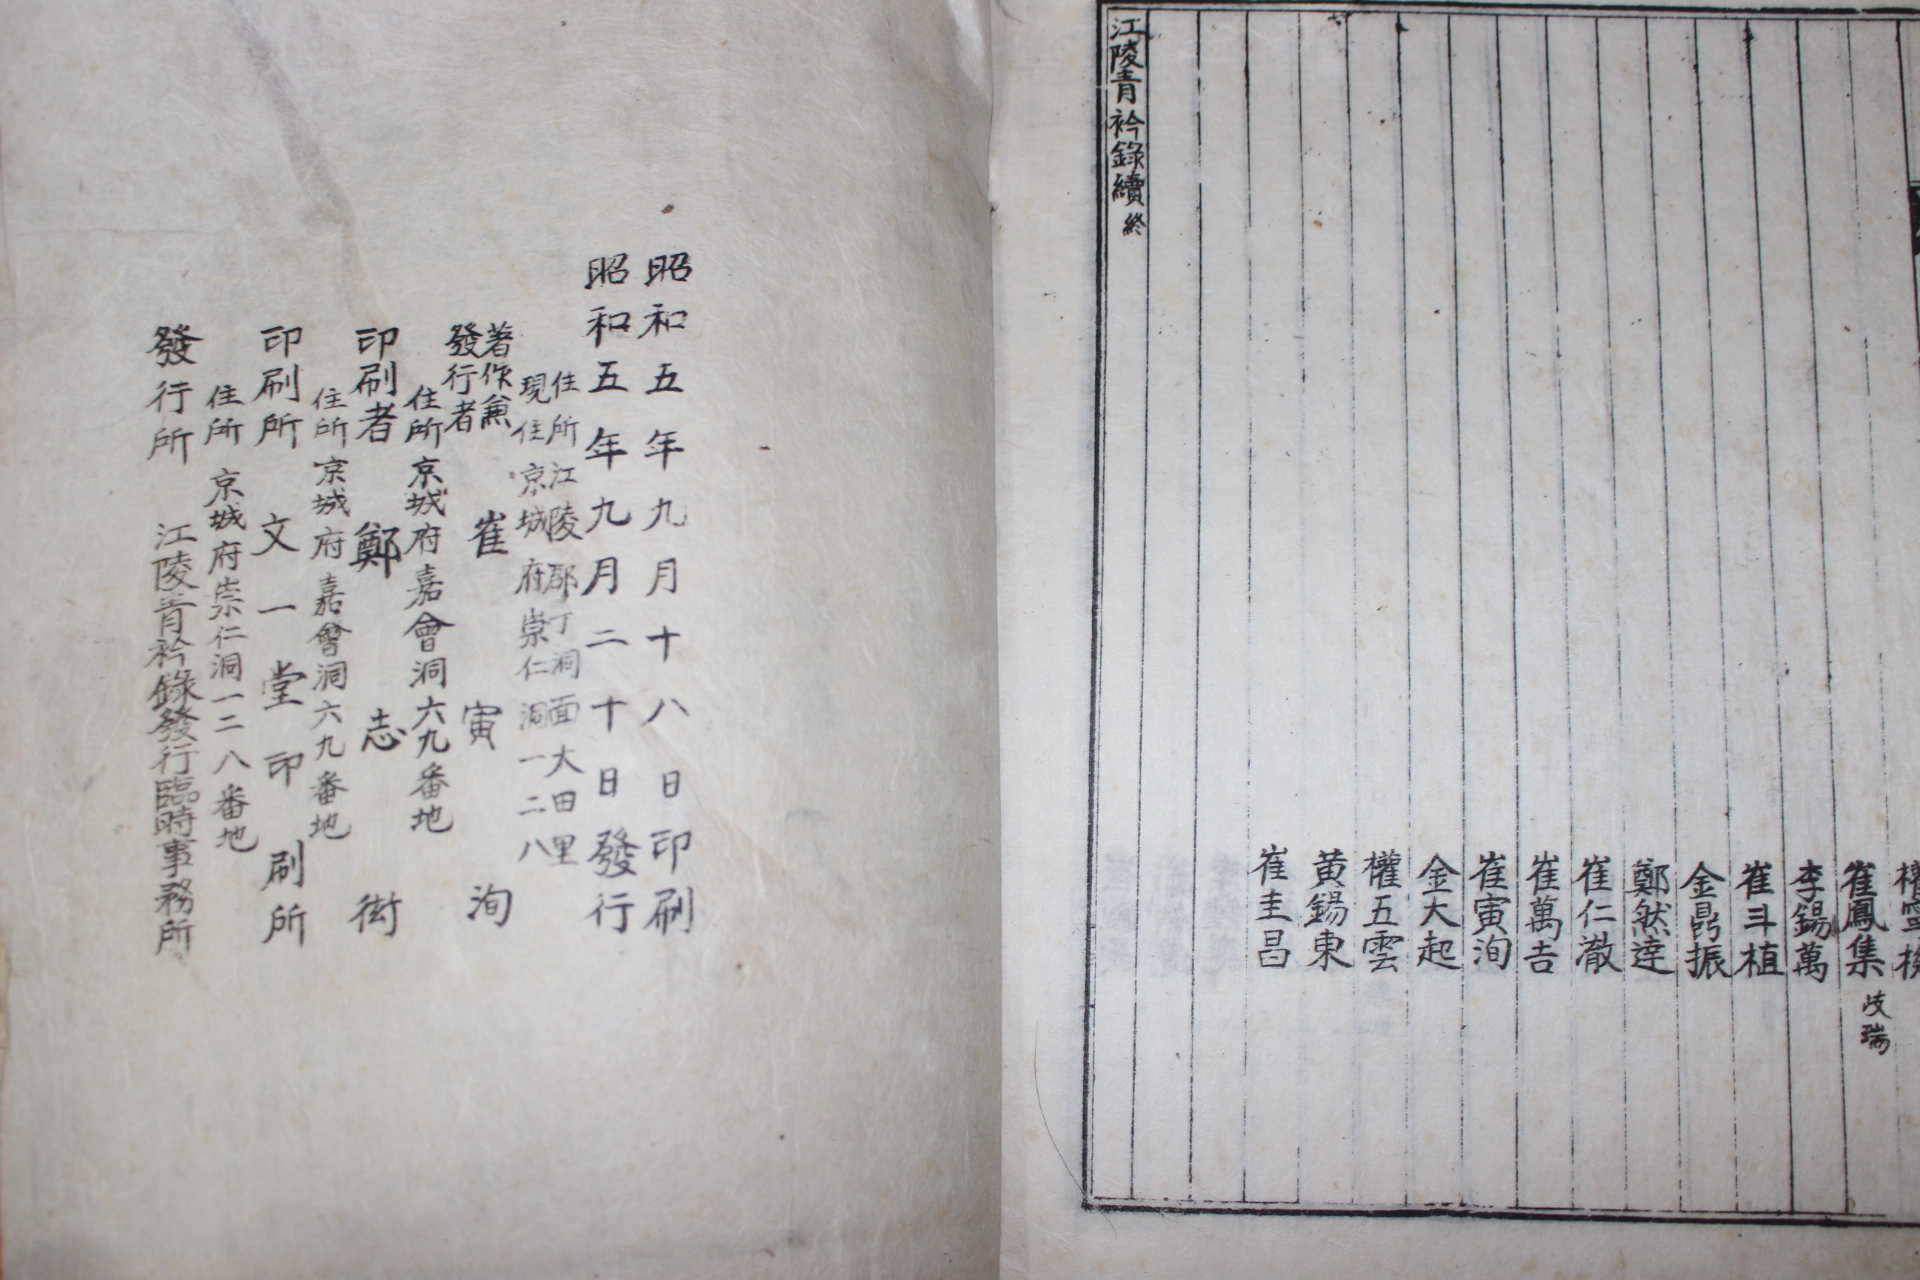 崔鳳集 岐瑞
李錫萬
崔斗植
金鼎振
鄭然達
崔仁澈
崔萬吉
崔寅洵
金大起
權五雲
黃錫東
崔圭昌
江陵青衿錄續 終
昭和五年九月十八日印刷
昭和五年九月二十日發行
住所 江陵郡丁洞面大田里
現住 京城府崇仁洞一二八
著作兼
發行者 崔寅洵
住所 京城府嘉會洞六九番地
印刷者 鄭志衒
住所 京城府嘉會洞六九番地
印刷所 文一堂印刷所
住所 京城府崇仁洞一二八番地
發行所 江陵青衿錄發行臨時事務所